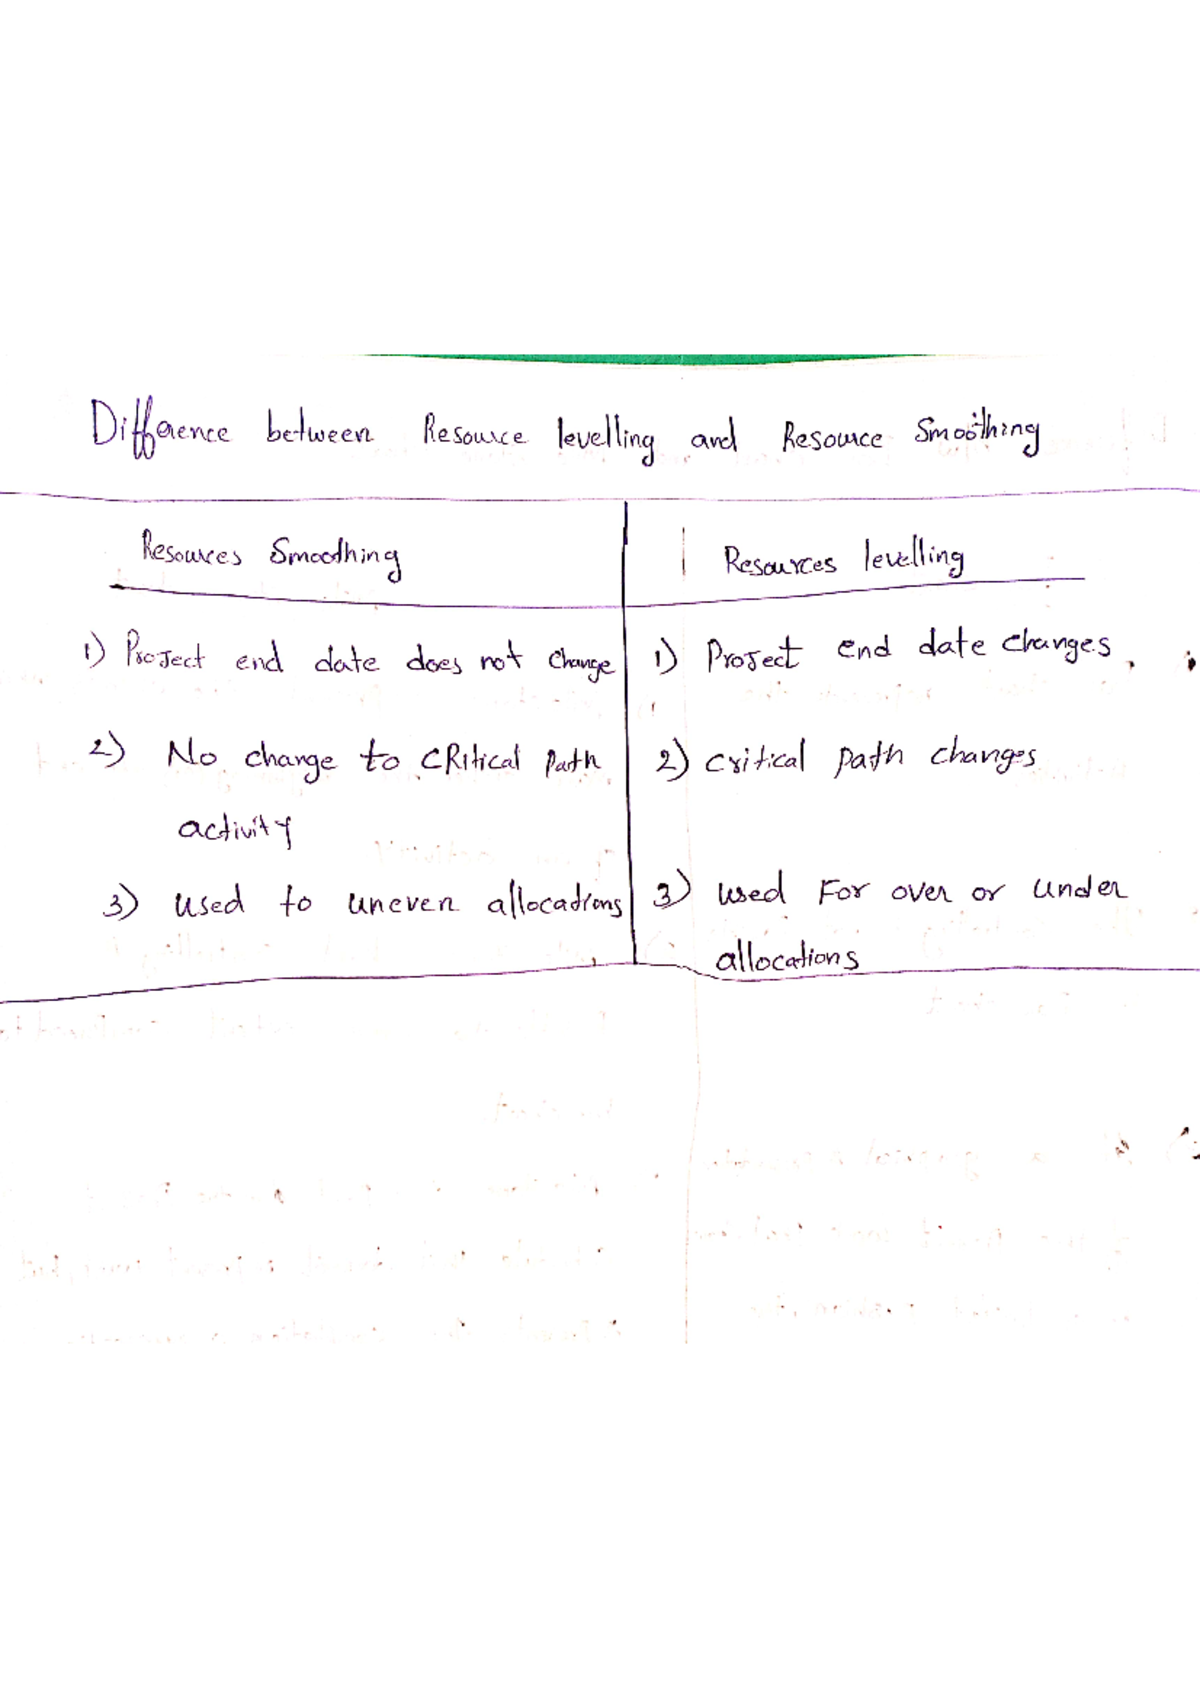 Difference between Resource levelling and Resource Smoothing
Resources Smoothing
1) Project end date does not change
2) No change to CRitical Path
activity
3) used to uneven allocations
Resources levelling
1) Project end date changes.
2) critical path changes
3) used For over or under
allocations